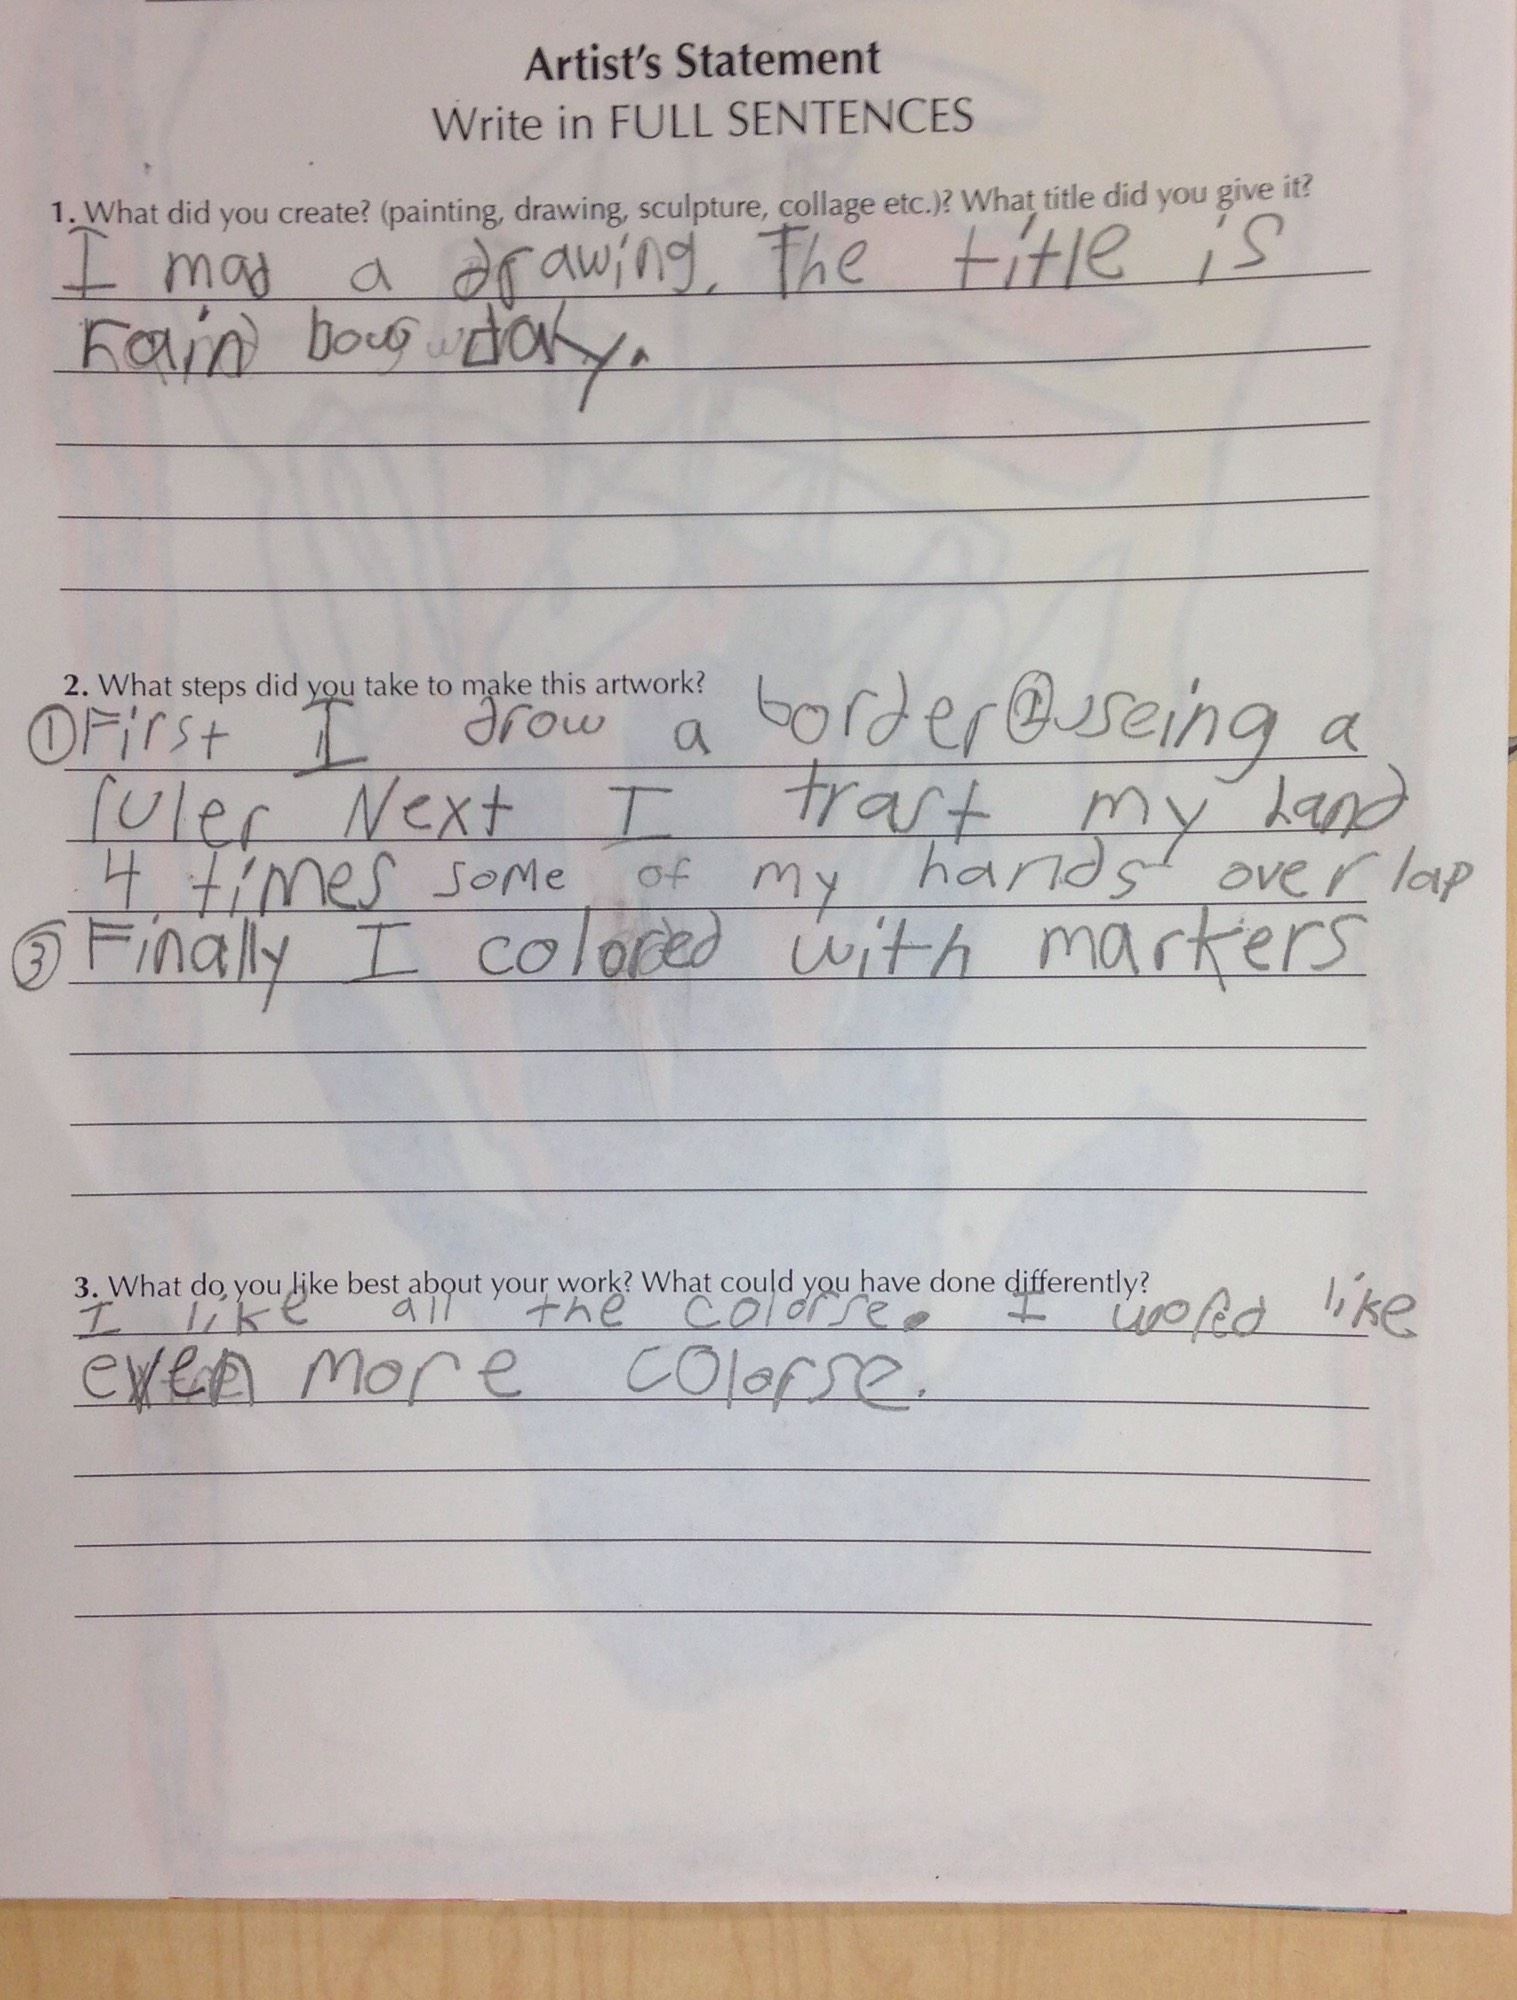 Artist's Statement
Write in FULL SENTENCES
1. What did you create? (painting, drawing, sculpture, collage etc.)? What title did you give it?
I mad a drawing. The title is
rain bow day.
2. What steps did you take to make this artwork?
① First I drow a border ② useing a
ruler Next I trast my hand
4 times some of my hands over lap
③ Finally I colored with markers
3. What do you like best about your work? What could you have done differently?
I like all the colorse. I wolad like
even more colorse.